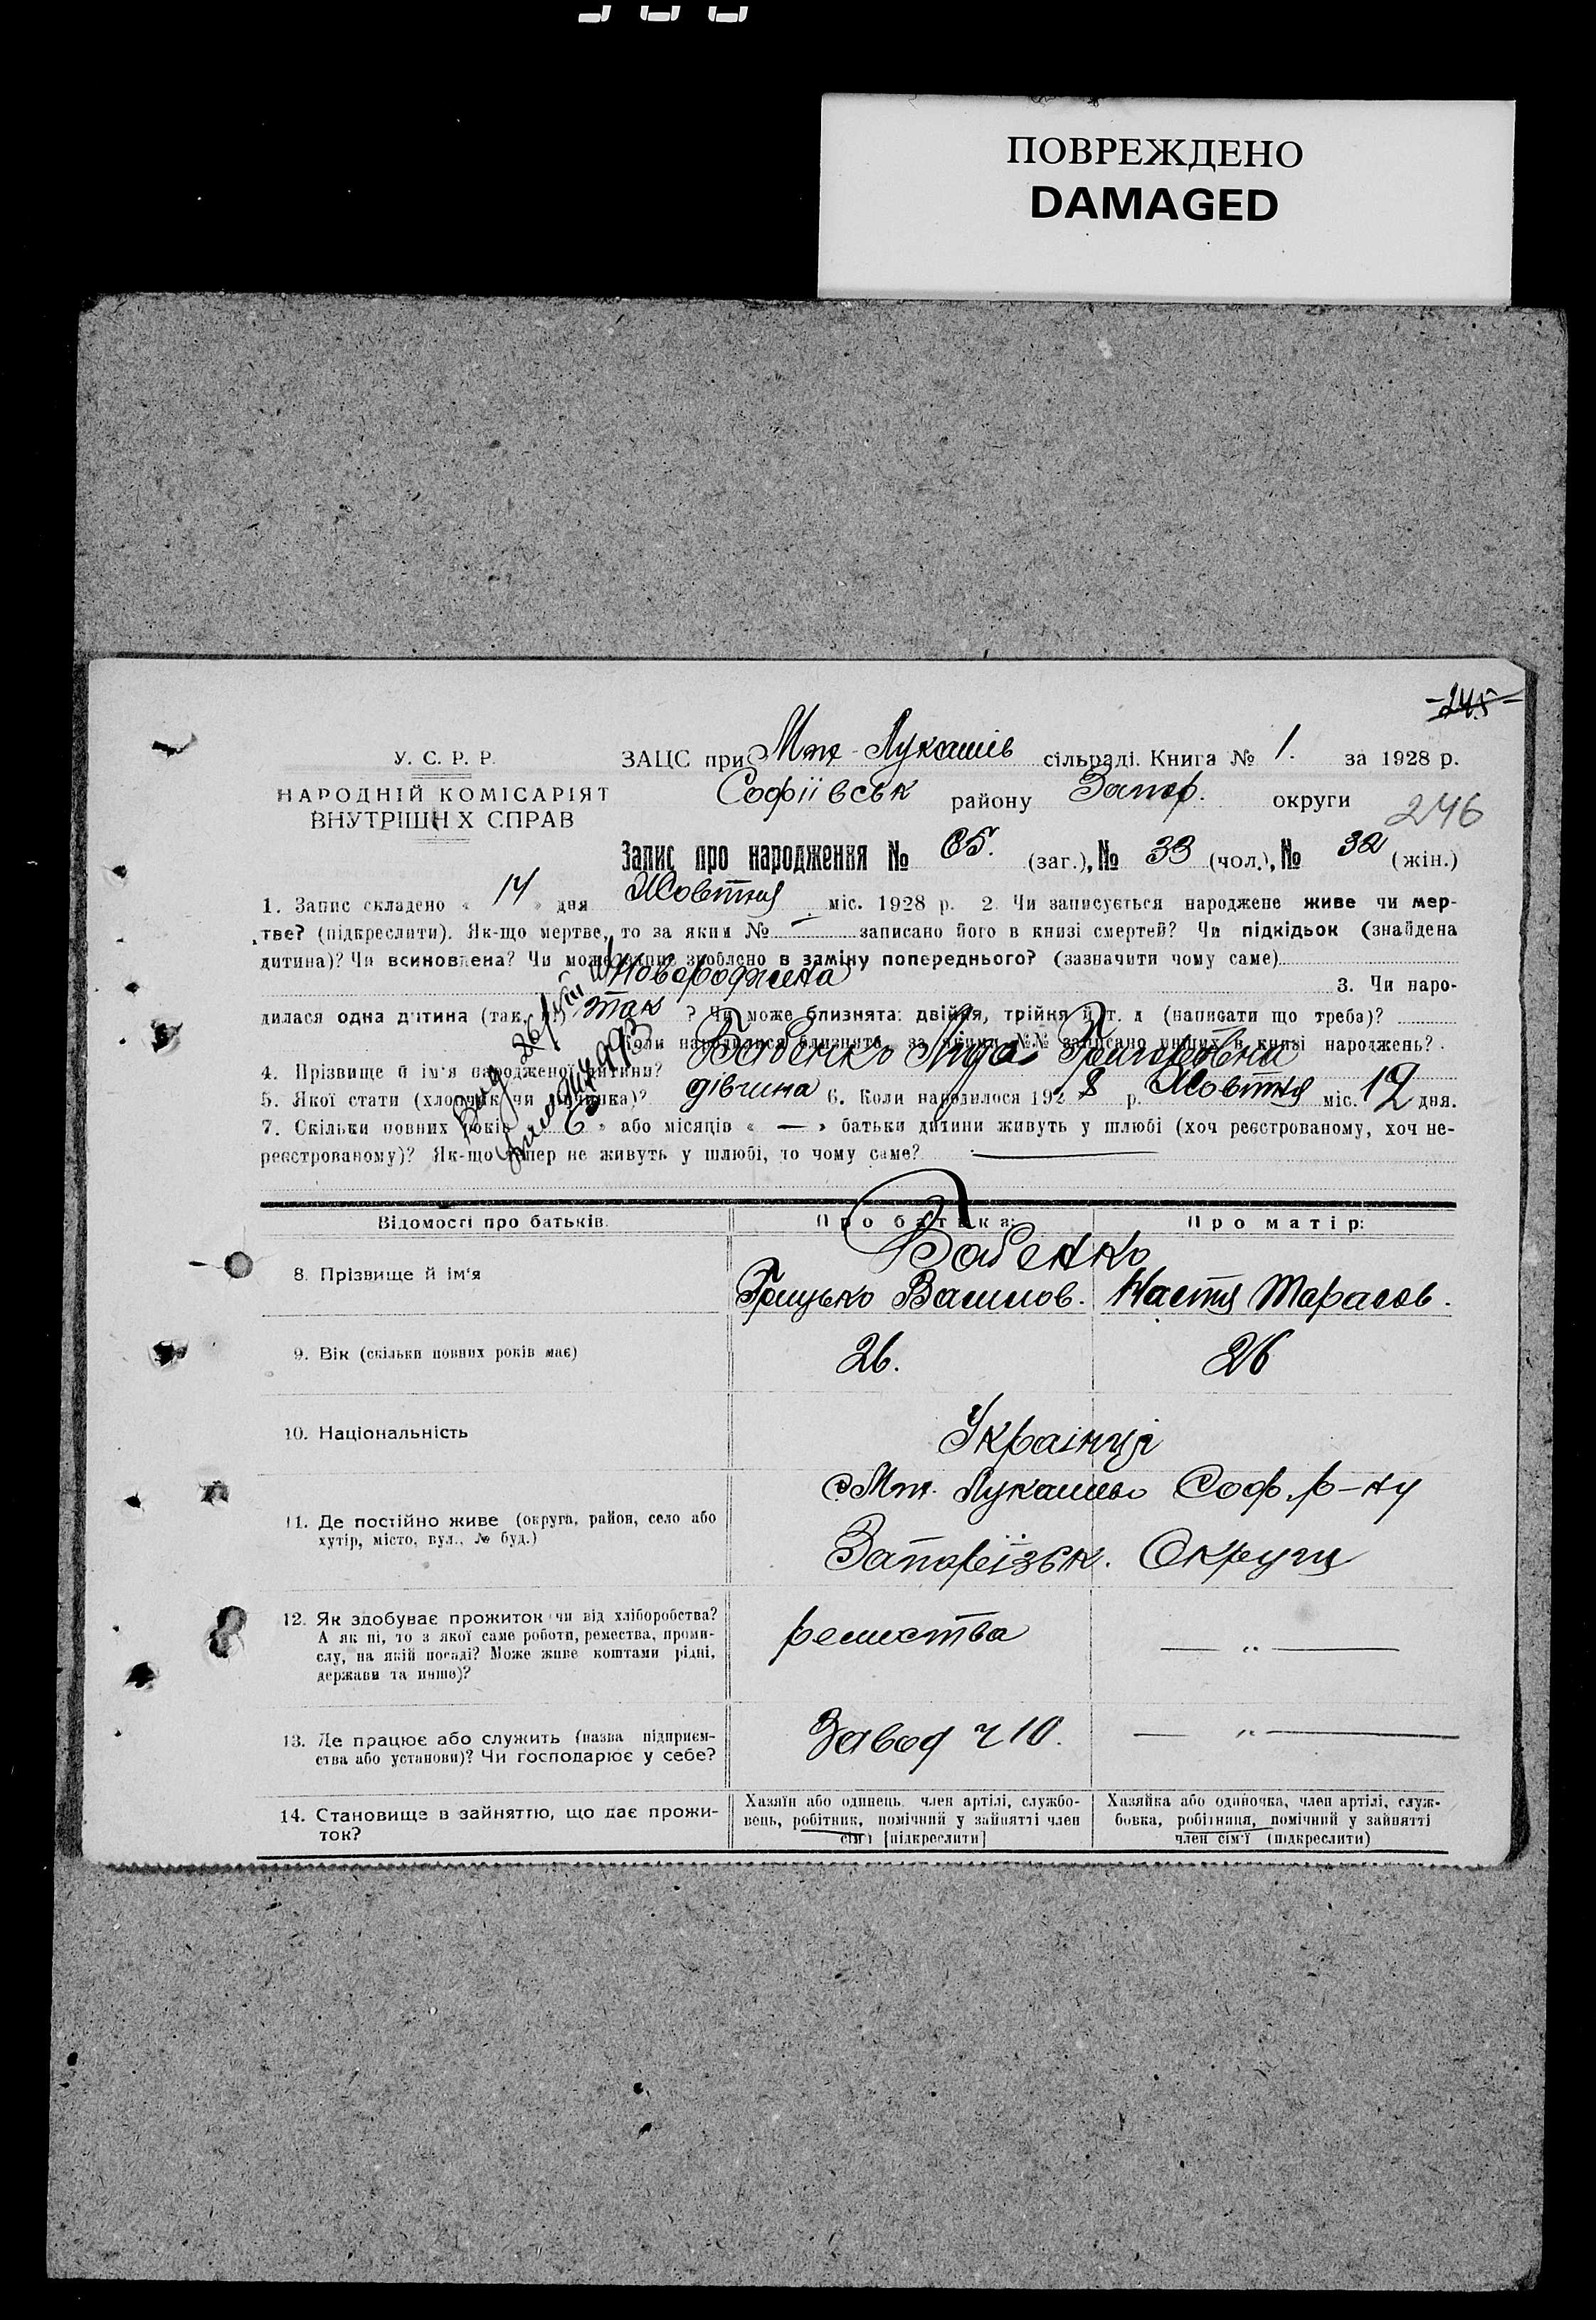 ПОВРЕЖДЕНО
DAMAGED
245
У. С. Р. Р.
НАРОДНІЙ КОМІСАРІЯТ
ВНУТРІШНІХ СПРАВ
ЗАЦС при Мт Лукашів сільраді. Книга № 1. за 1928 р.
Софіївськ району Запор. округи
246
Запис про народження № 65. (заг.), № 33 (чол.), № 32 (жін.)
1. Запис складено « 14 » дня Жовтня міс. 1928 р. 2. Чи записується народжене живе чи мер-
тве? (підкреслити). Як-що мертве, то за яким № — записано його в книзі смертей? Чи підкідьок (знайдена
дитина)? Чи всиновлена? Чи може запис зроблено в заміну попереднього? (зазначити чому саме)
Новороджена 3. Чи наро-
дилася одна дитина (так, ні) так ? Чи може близнята: двійня, трійня й т. д (написати що треба)?
Коли народилися близнята, за якими №№ записано инших в книзі народжень?
4. Прізвище й ім'я народженої дитини? Бабенко Ліда Григоровни
5. Якої стати (хлопчик чи дівчинка)? дівчина 6. Коли народилося 192 8 р. Жовтня міс. 12 дня.
7. Скільки повних років « 6 » або місяців « — » батьки дитини живуть у шлюбі (хоч реєстрованому, хоч не-
реєстрованому)? Як-що тепер не живуть у шлюбі, то чому саме? —
Відомості про батьків. Про батька: Про матір:
Бабенко
8. Прізвище й ім'я Грицько Васильов. Настя Тарасов.
9. Вік (скільки повних років має) 26. 26
10. Національність Українці
11. Де постійно живе (округа, район, село або
хутір, місто, вул., № буд.)
с. Мт. Лукашево Соф. р-ну
Запорізьк. Округи
12. Як здобуває прожиток чи від хліборобства?
А як ні, то з якої саме роботи, ремества, проми-
слу, на якій посаді? Може живе коштами рідні,
держави та инше)?
ремества — „ —
13. Де працює або служить (назва підприєм-
ства або установи)? Чи господарює у себе?
Завод ч 10. — „ —
14. Становище в зайняттю, що дає прожи-
ток?
Хазяїн або одинець, член артілі, службо-
вець, робітник, помічний у зайнятті член
сім'ї [підкреслити]
Хазяйка або одиночка, член артілі, служ-
бовка, робітниця, помічний у зайнятті
член сім'ї (підкреслити)